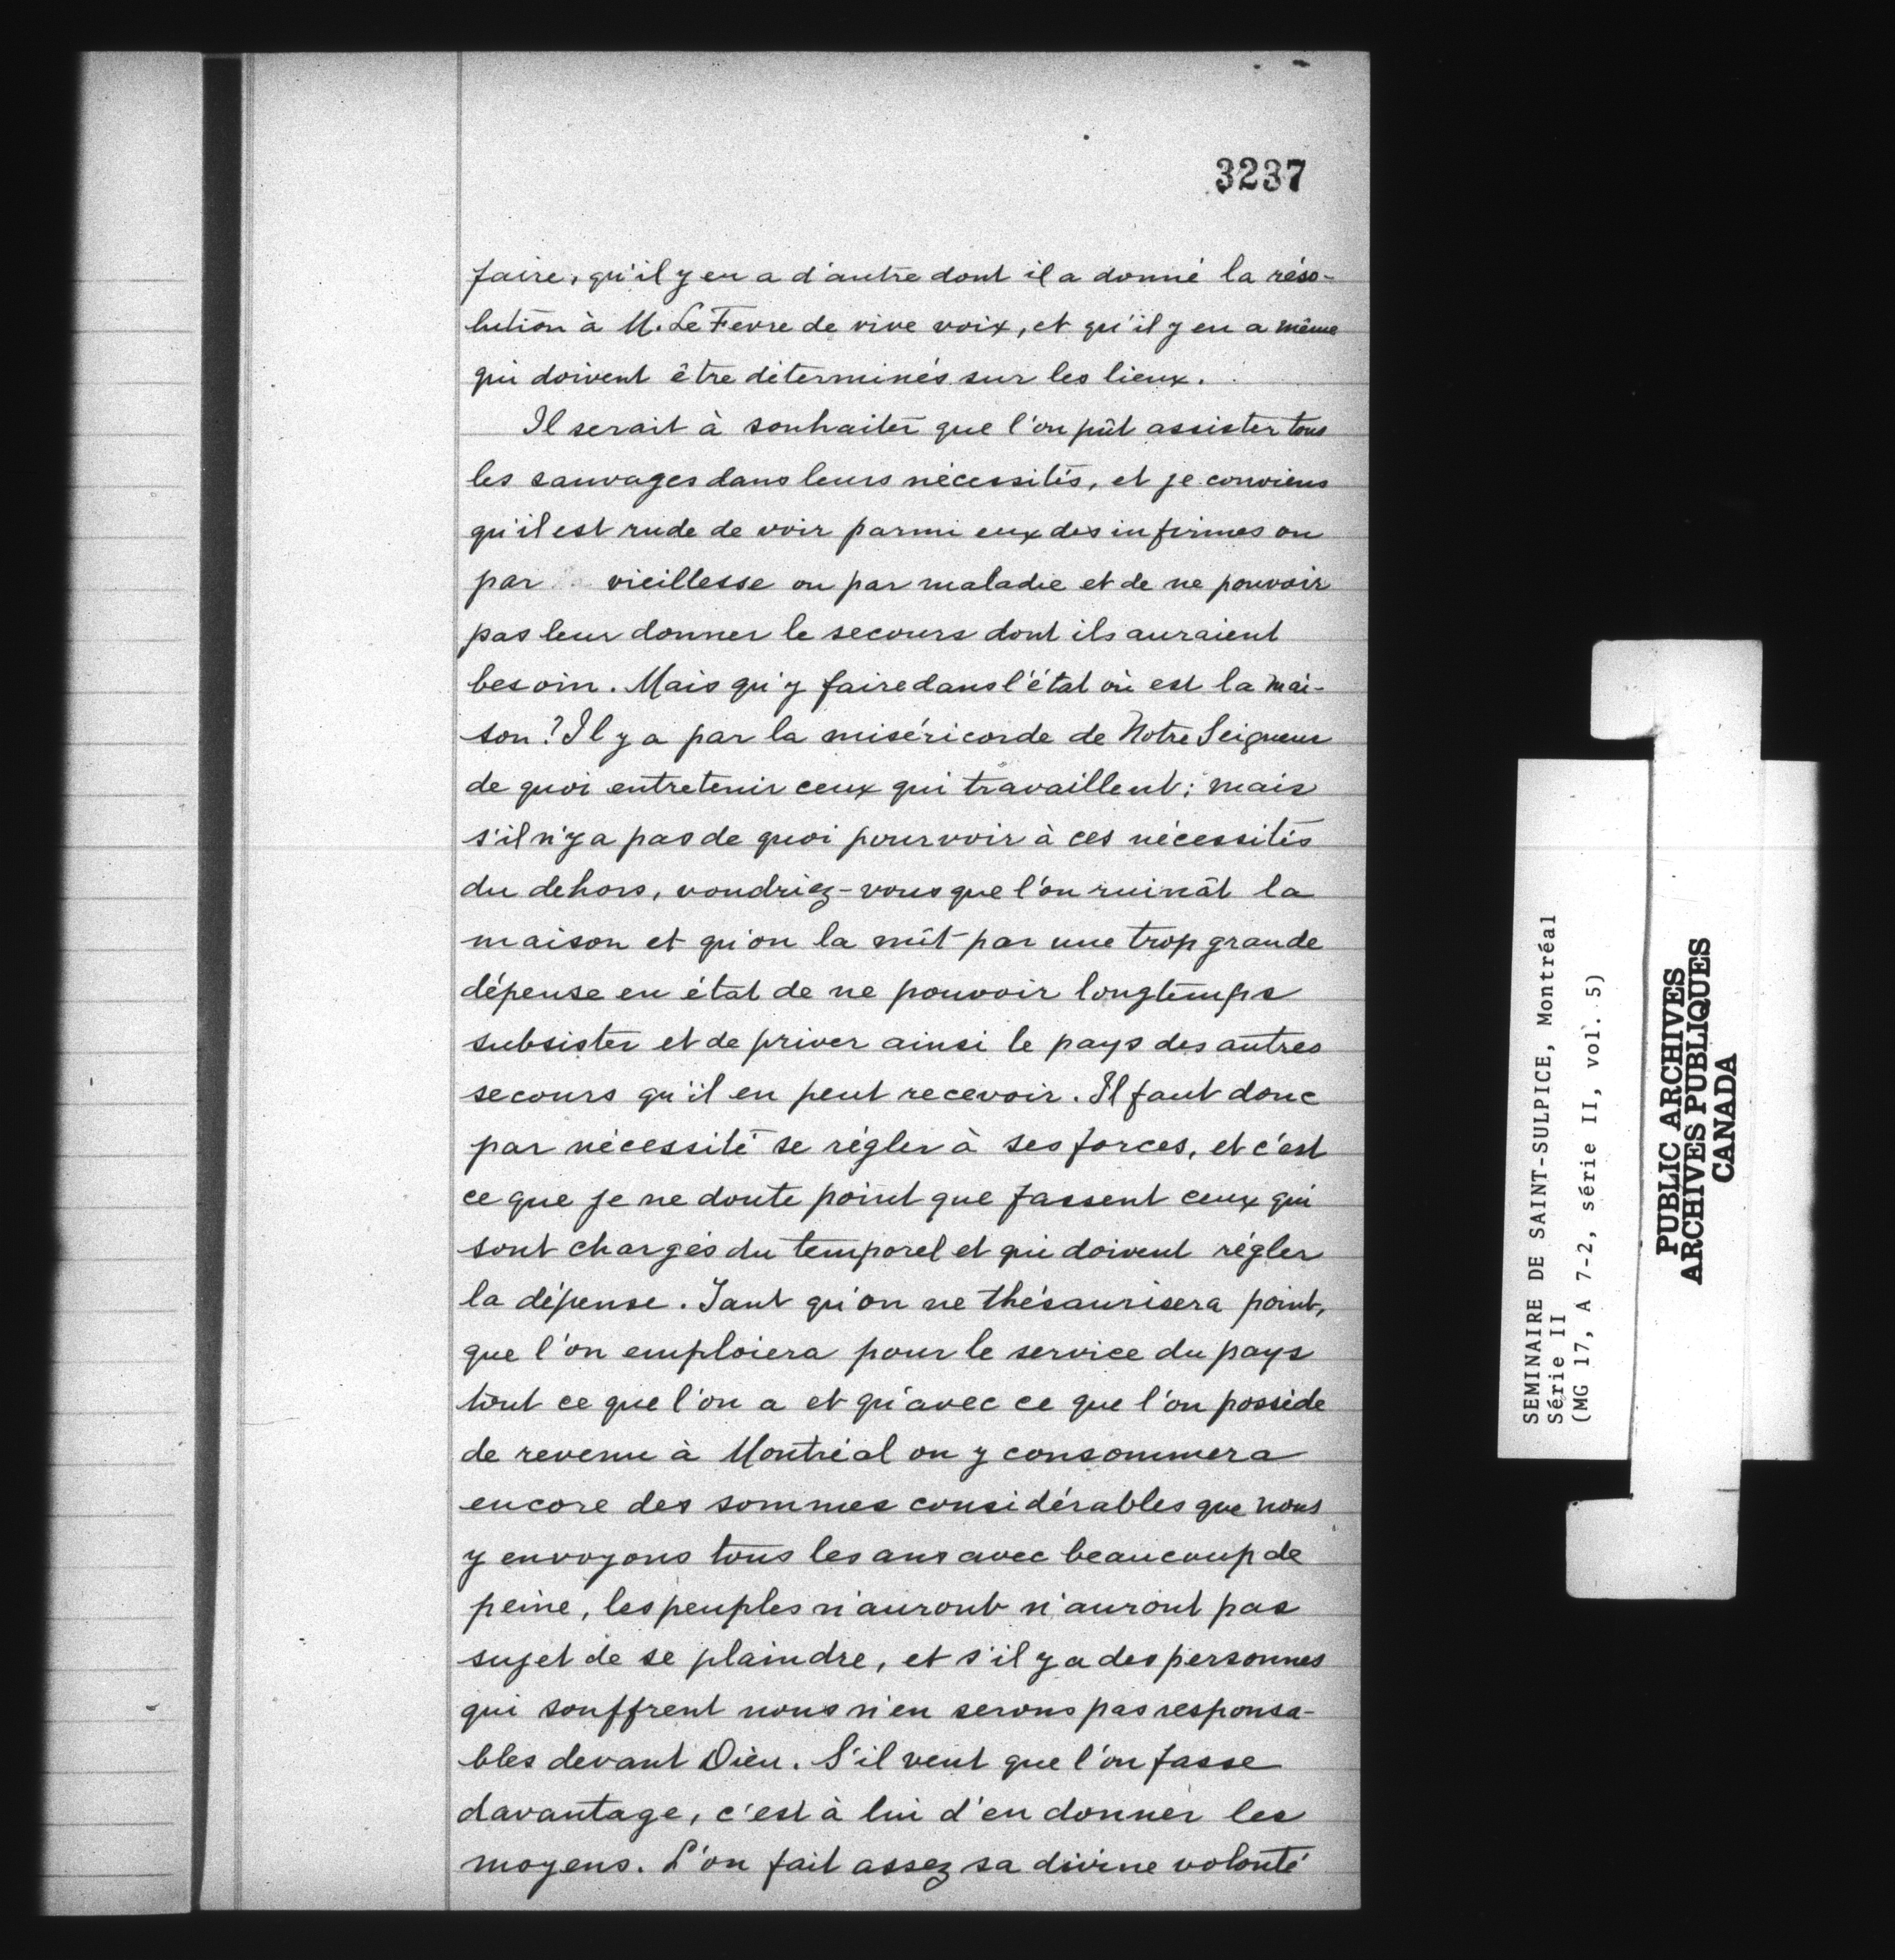 3237
faire, qu'il y en a d'autre dont il a donné la réso-
lution à M. Le Fevre de vive voix, et qu'il y en a même
qui doivent être déterminés sur les lieux.
Il serait à souhaiter que l'on pût assister tous
les sauvages dans leurs nécessités, et je conviens
qu'il est rude de voir parmi eux des infirmes ou
par vieillesse ou par maladie et de ne pouvoir
pas leur donner le secours dont ils auraient
besoin. Mais qu'y faire dans l'état où est la mai-
son? Il y a par la miséricorde de Notre Seigneur
de quoi entretenir ceux qui travaillent; mais
s'il n'y a pas de quoi pourvoir à ces nécessités
du dehors, voudriez-vous que l'on ruinât la
maison et qu'on la mît par une trop grande
dépense en état de ne pouvoir longtemps
subsister et de priver ainsi le pays des autres
secours qu'il en peut recevoir. Il faut donc
par nécessité se régler à ses forces, et c'est
ce que je ne doute point que fassent ceux qui
sont chargés du temporel et qui doivent régler
la dépense. Tant qu'on ne thésaurisera point,
que l'on emploiera pour le service du pays
tout ce que l'on a et qu'avec ce que l'on possède
de revenu à Montréal on y consommera
encore des sommes considérables que nous
y envoyons tous les ans avec beaucoup de
peine, les peuples n'auront n'auront pas
sujet de se plaindre, et s'il y a des personnes
qui souffrent nous n'en serons pas responsa-
bles devant Dieu. S'il veut que l'on fasse
davantage, c'est à lui d'en donner les
moyens. L'on fait assez sa divine volonté
SEMINAIRE DE SAINT-SULPICE, Montréal
Série II
(MG 17, A 7-2, série II, vol. 5)
PUBLIC ARCHIVES
ARCHIVES PUBLIQUES
CANADA